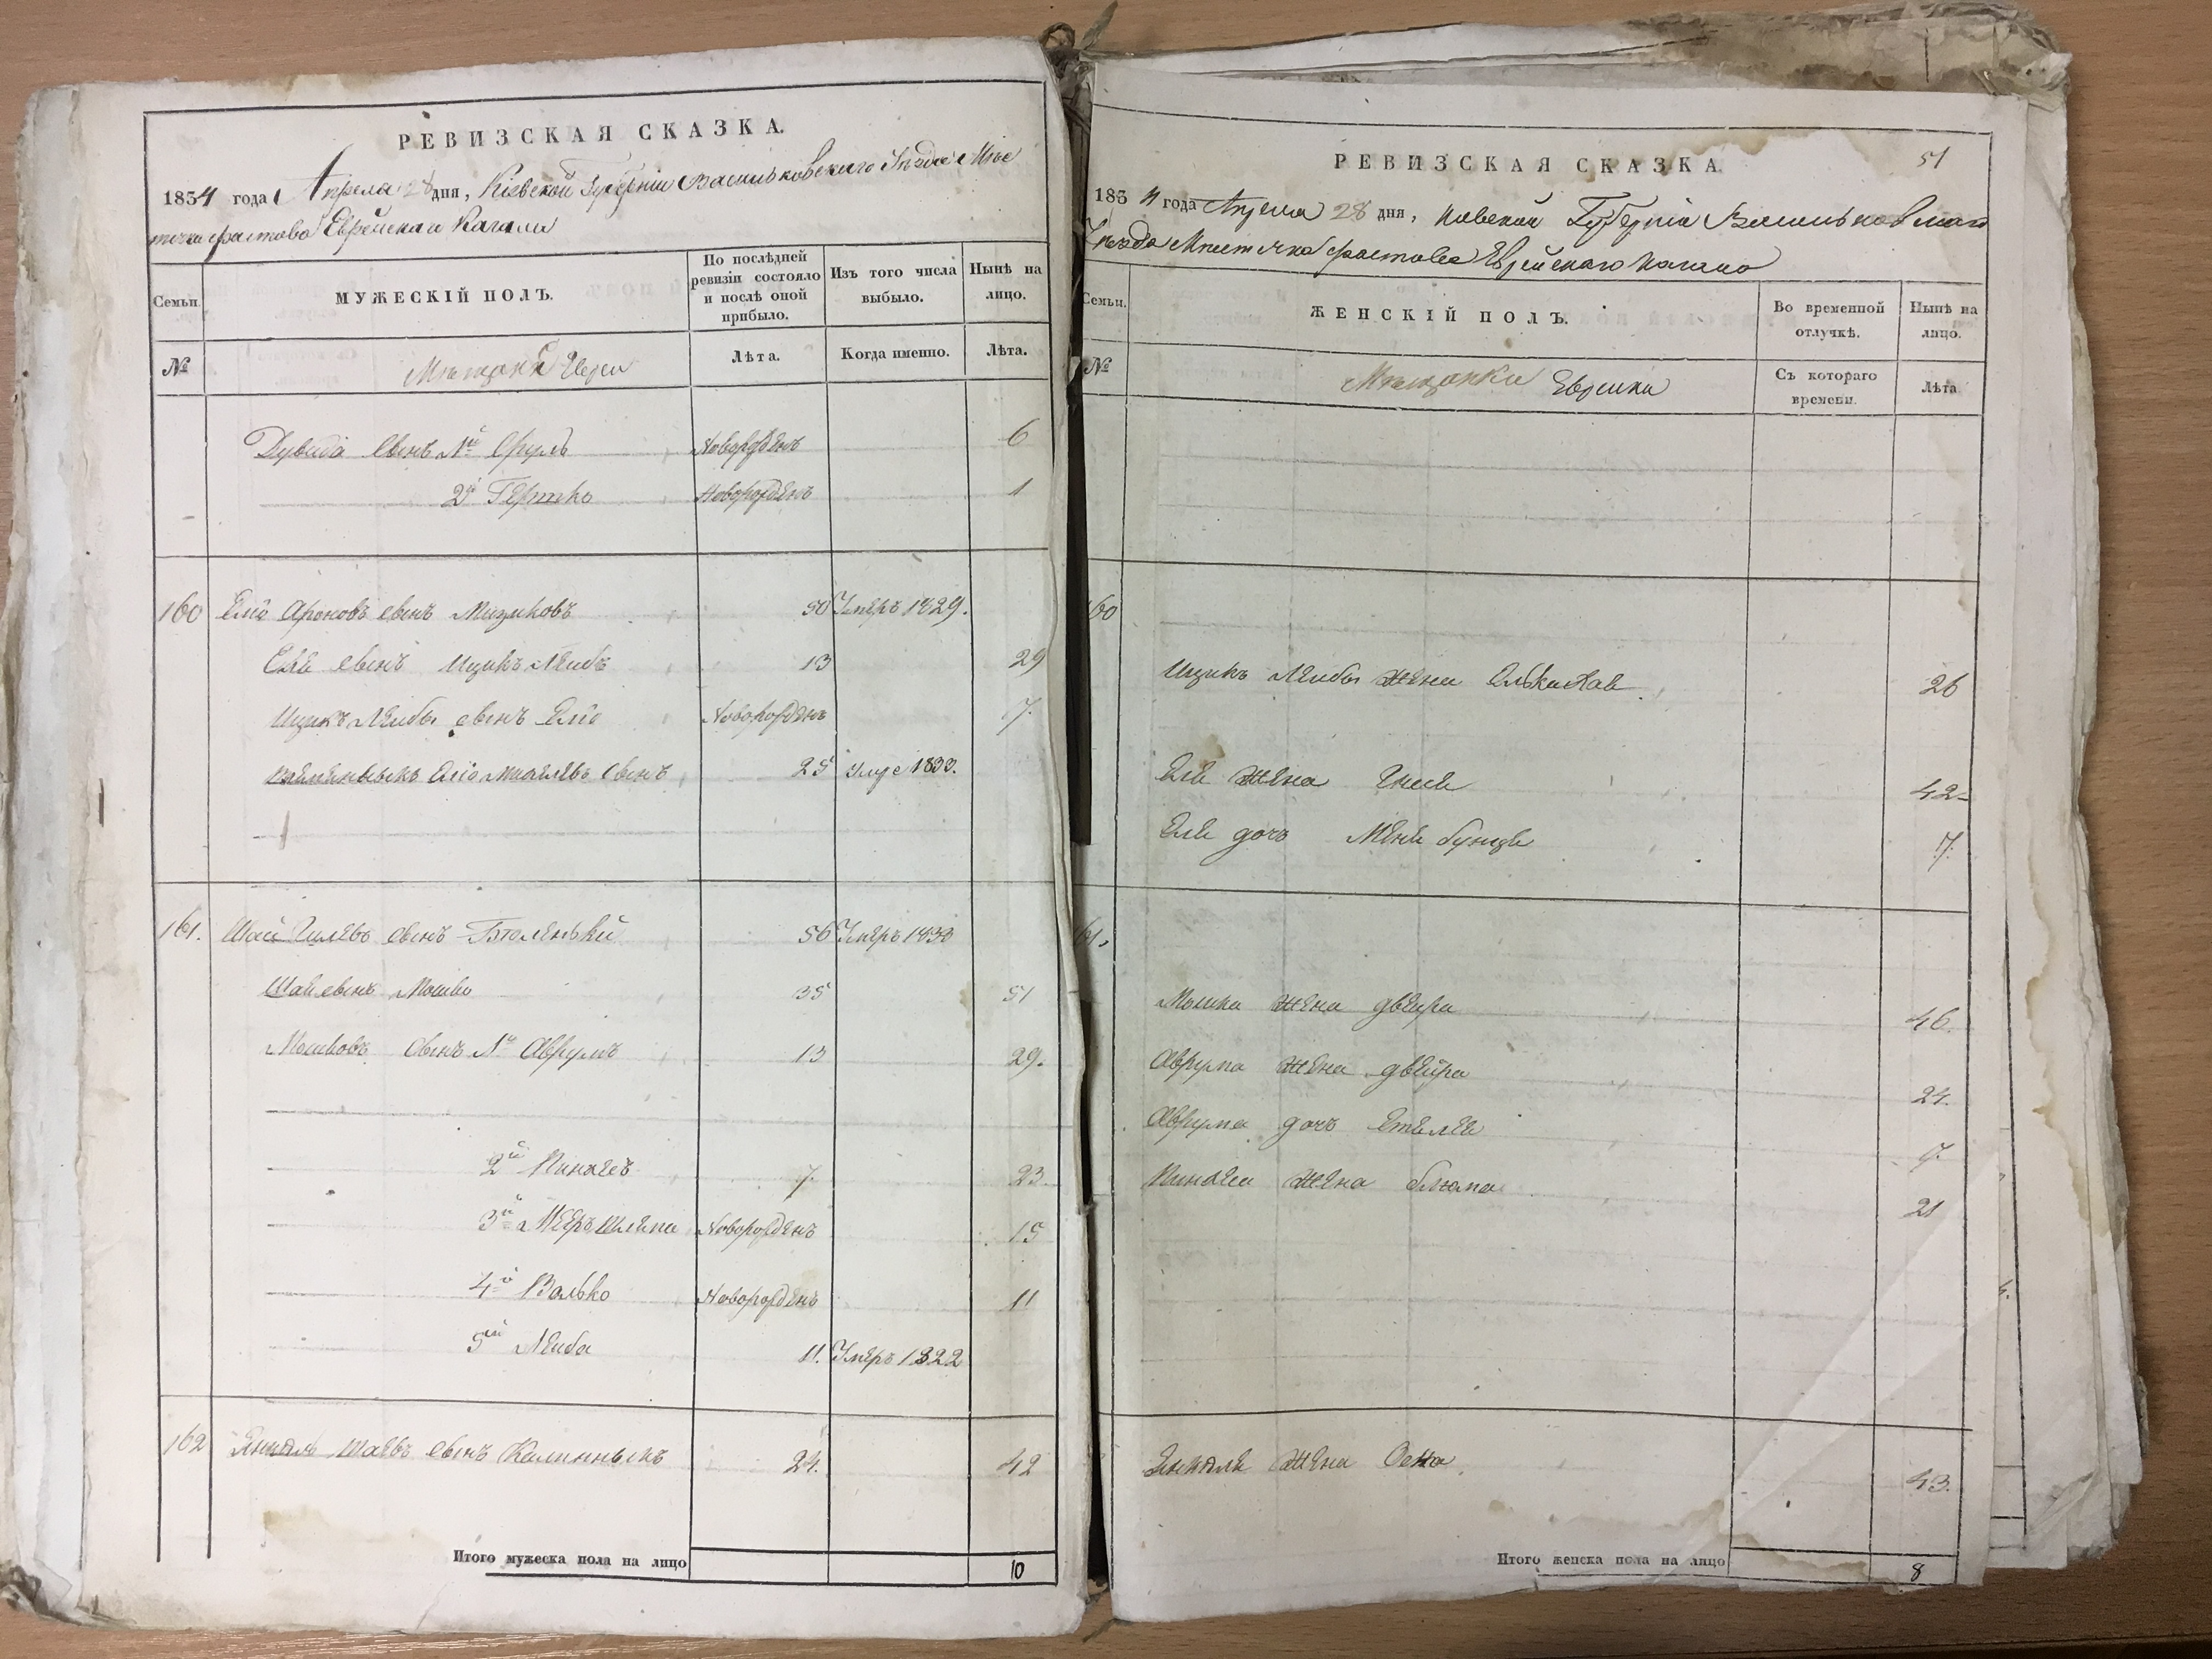 РЕВИЗСКАЯ СКАЗКА.
1834 года Апреля 28 дня, Кіевской Губерніи Васильковскаго Уезда Мѣс
течка Фастова Еврейскаго Кагала
Семьи.
МУЖЕСКІЙ ПОЛЪ.
По послѣдней ревизіи состояло и послѣ оной прибыло.
Изъ того числа выбыло.
Нынѣ на лицо.
№
Мѣщанъ Евреи
Лѣта.
Когда именно.
Лѣта.
Дувида сынъ 1й Сруль Новорожденъ 6
2й Гершко Новорожденъ 1
160 Еліо Ароновъ сынъ Мизиковъ 50 Умеръ 1829.
Ели сынъ Ицикъ Лейбъ 13 29
Ицикъ Лейбы сынъ Еліо Новорожденъ 7.
25 1833.
161. Шай сынъ 56 Умеръ 1830
Шаи сынъ Мошко 35 51
Мошковъ сынъ 1й Аврумъ 13 29.
2й Пинхасъ 7. 23.
3й Новорожденъ 15
4й Волько Новорожденъ 11
5ый Лейба 11. Умеръ 1822
162 Янкель Шаевъ сынъ 24. 42
Итого мужеска пола на лицо 10
51
РЕВИЗСКАЯ СКАЗКА
1834 года Апреля 28 дня, Кіевской Губерніи Васильковскаго
Уезда Местечка Фастова Еврейскаго Кагала
Семьи.
ЖЕНСКІЙ ПОЛЪ.
Во временной отлучкѣ.
Нынѣ на лицо.
№
Мѣщанки Еврейки
Съ котораго времени.
Лѣта
160
Ицикъ Лейбы жена 26
Ели жена 42
Ели дочь 7.
161.
Мошка жена двейра 46.
Аврума жена двейра 24.
Аврума дочь 7.
Пинхаса жена блюма 21
Янкеля жена 43.
Итого женска пола на лицо 8